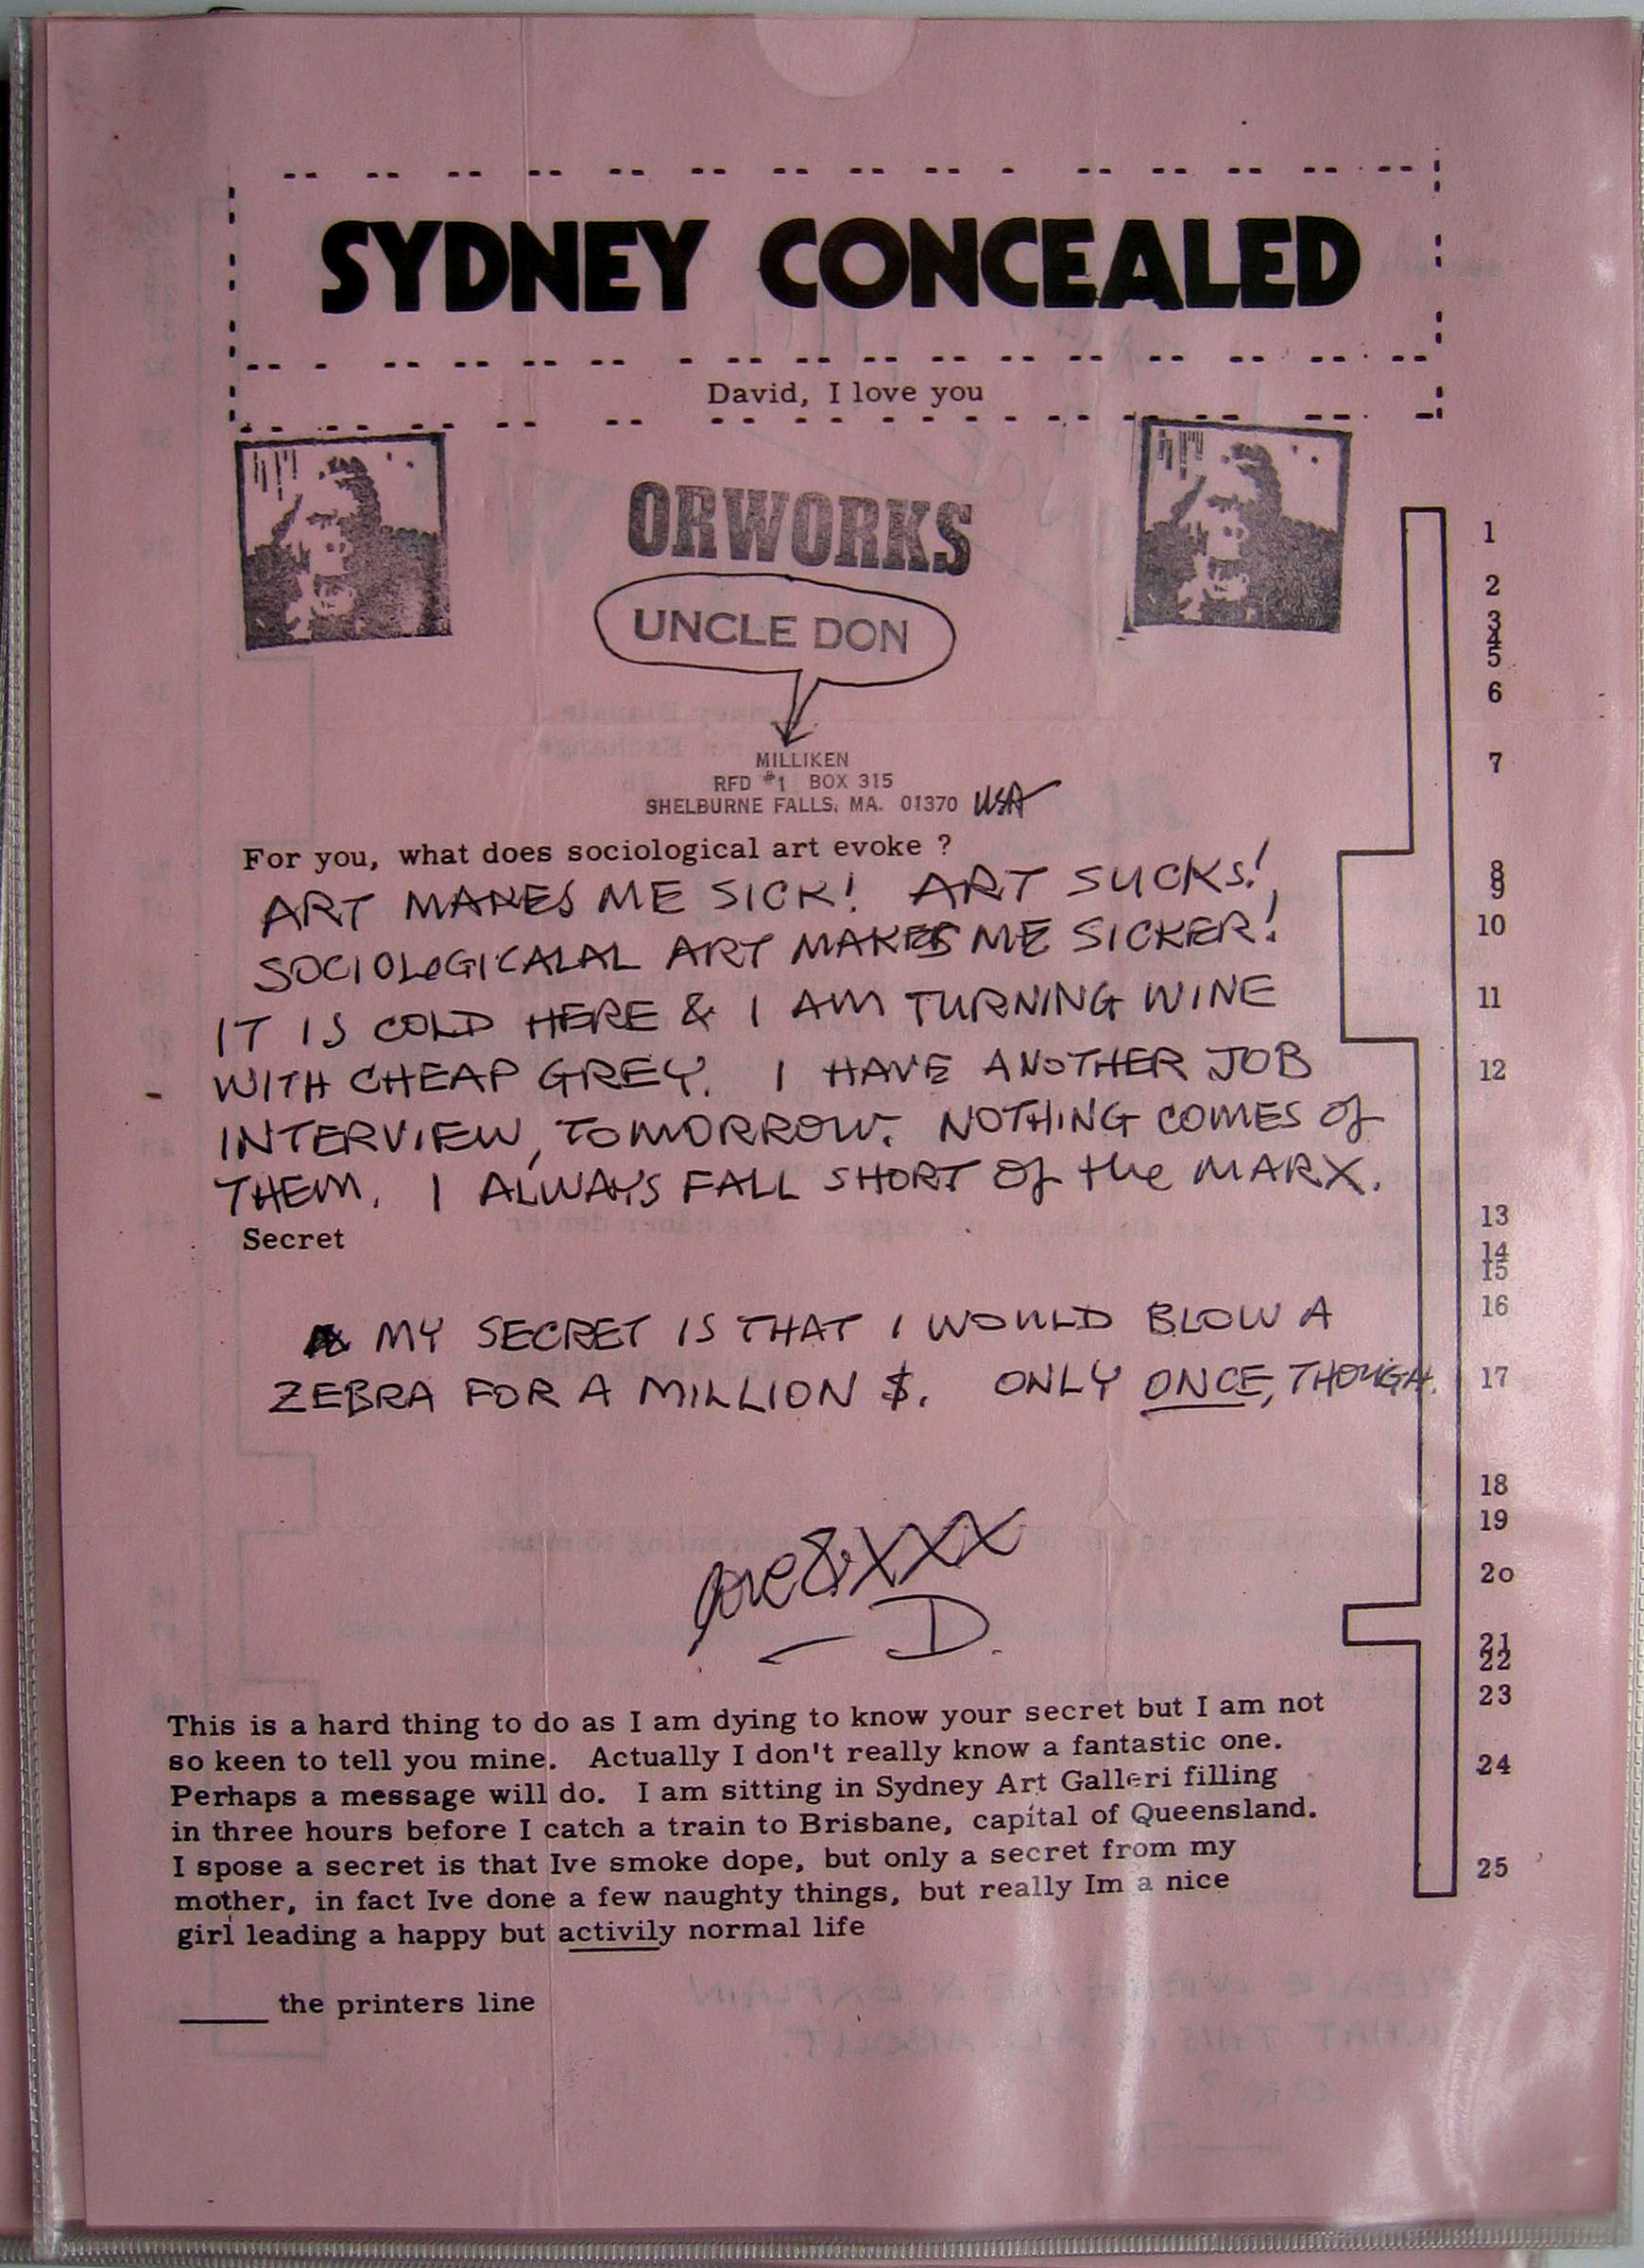 SYDNEY CONCEALED
David, I love you
ORWORKS
UNCLE DON
MILLIKEN
RFD #1 BOX 315
SHELBURNE FALLS, MA. 01370 USA
For you, what does sociological art evoke ?
ART MAKES ME SICK! ART SUCKS!
SOCIOLOGICALAL ART MAKES ME SICKER!
IT IS COLD HERE & I AM TURNING WINE
WITH CHEAP GREY. I HAVE ANOTHER JOB
INTERVIEW, TOMORROW. NOTHING COMES of
THEM. I ALWAYS FALL SHORT of the MARX.
Secret
MY SECRET IS THAT I WOULD BLOW A
ZEBRA FOR A MILLION $. ONLY ONCE, THOUGH.
love & XXX
— D.
This is a hard thing to do as I am dying to know your secret but I am not
so keen to tell you mine. Actually I don't really know a fantastic one.
Perhaps a message will do. I am sitting in Sydney Art Galleri filling
in three hours before I catch a train to Brisbane, capital of Queensland.
I spose a secret is that Ive smoke dope, but only a secret from my
mother, in fact Ive done a few naughty things, but really Im a nice
girl leading a happy but activily normal life
____ the printers line
1
2
3
4
5
6
7
8
9
10
11
12
13
14
15
16
17
18
19
2o
21
22
23
24
25